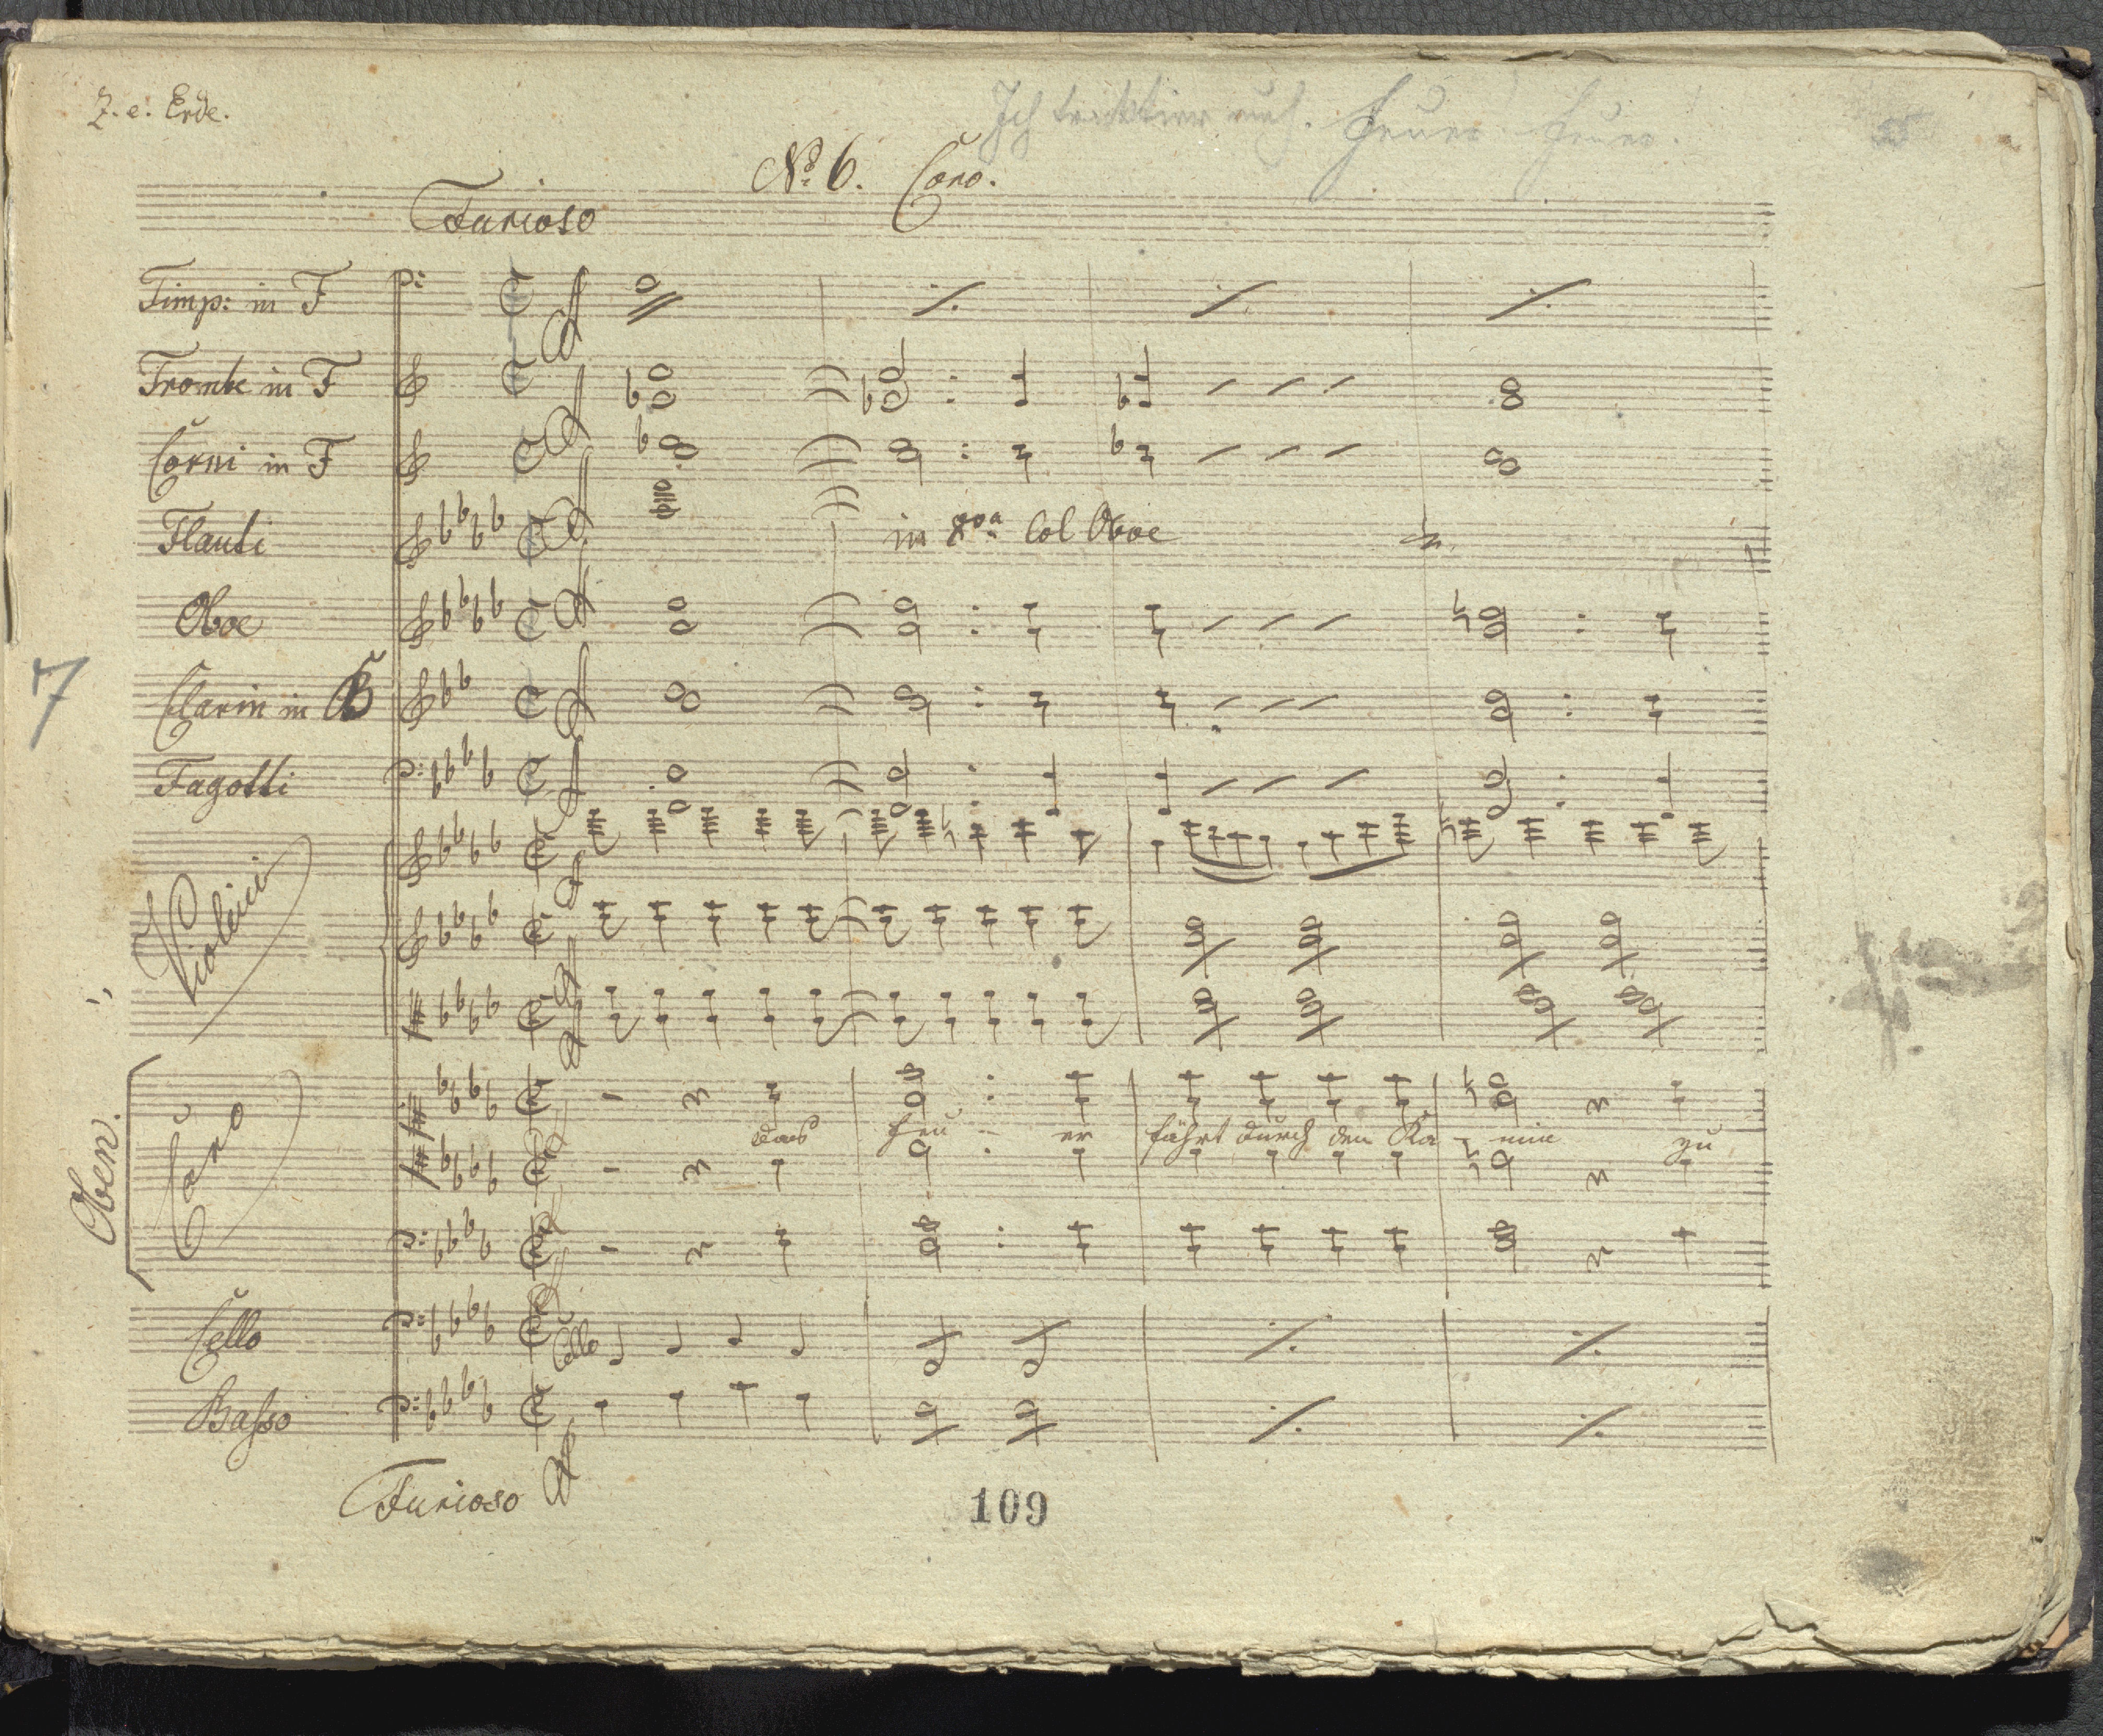 Z. e. Erde.
Ich Feuer. Feuer.
No. 6. Coro.
Furioso
Timp: in F
Trombe in F
Corni in F
Flauti
in 8va col Oboe
Oboe
7
Clarin in B
Fagotti
Violini
Oben.
Coro
das Feu - er fährt durch den Ka - min zu
Cello
Cello
Basso
Furioso
109